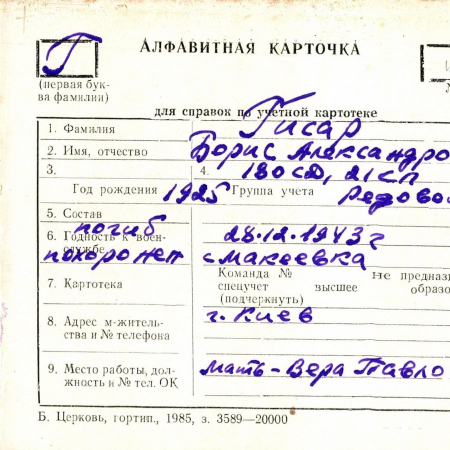 Г
АЛФАВИТНАЯ КАРТОЧКА
(первая бук-
ва фамилии)
для справок по учетной картотеке
1. Фамилия Гисар
2. Имя, отчество Борис Александро
3. 4. 180 сд, 21 сп
Год рождения 1925 Группа учета Рядово
5. Состав погиб
6. Годность к воен- 28.12.1943 г
службе похоронен с Макеевка
Команда № не предназ
7. Картотека спецучет высшее образо
(подчеркнуть)
8. Адрес м-житель- г. Киев
ства и № телефона
9. Место работы, дол- мать - Вера Павло
жность и № тел. ОК
Б. Церковь, гортип., 1985, з. 3589—20000